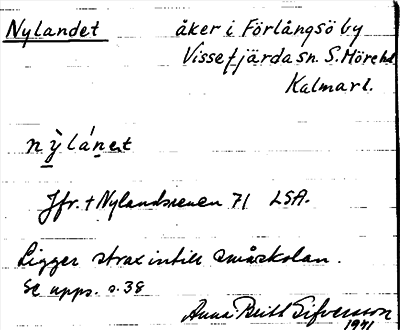 Nylandet åker i Förlångsö by
Vissefjärda sn. S. Möre hd
Kalmar l.
nỳlánet
Jfr. + Nylandsrenen 71 LSA.
Ligger strax intill småskolan.
Se upps. s. 38
Anna Britt Sifversson
1971